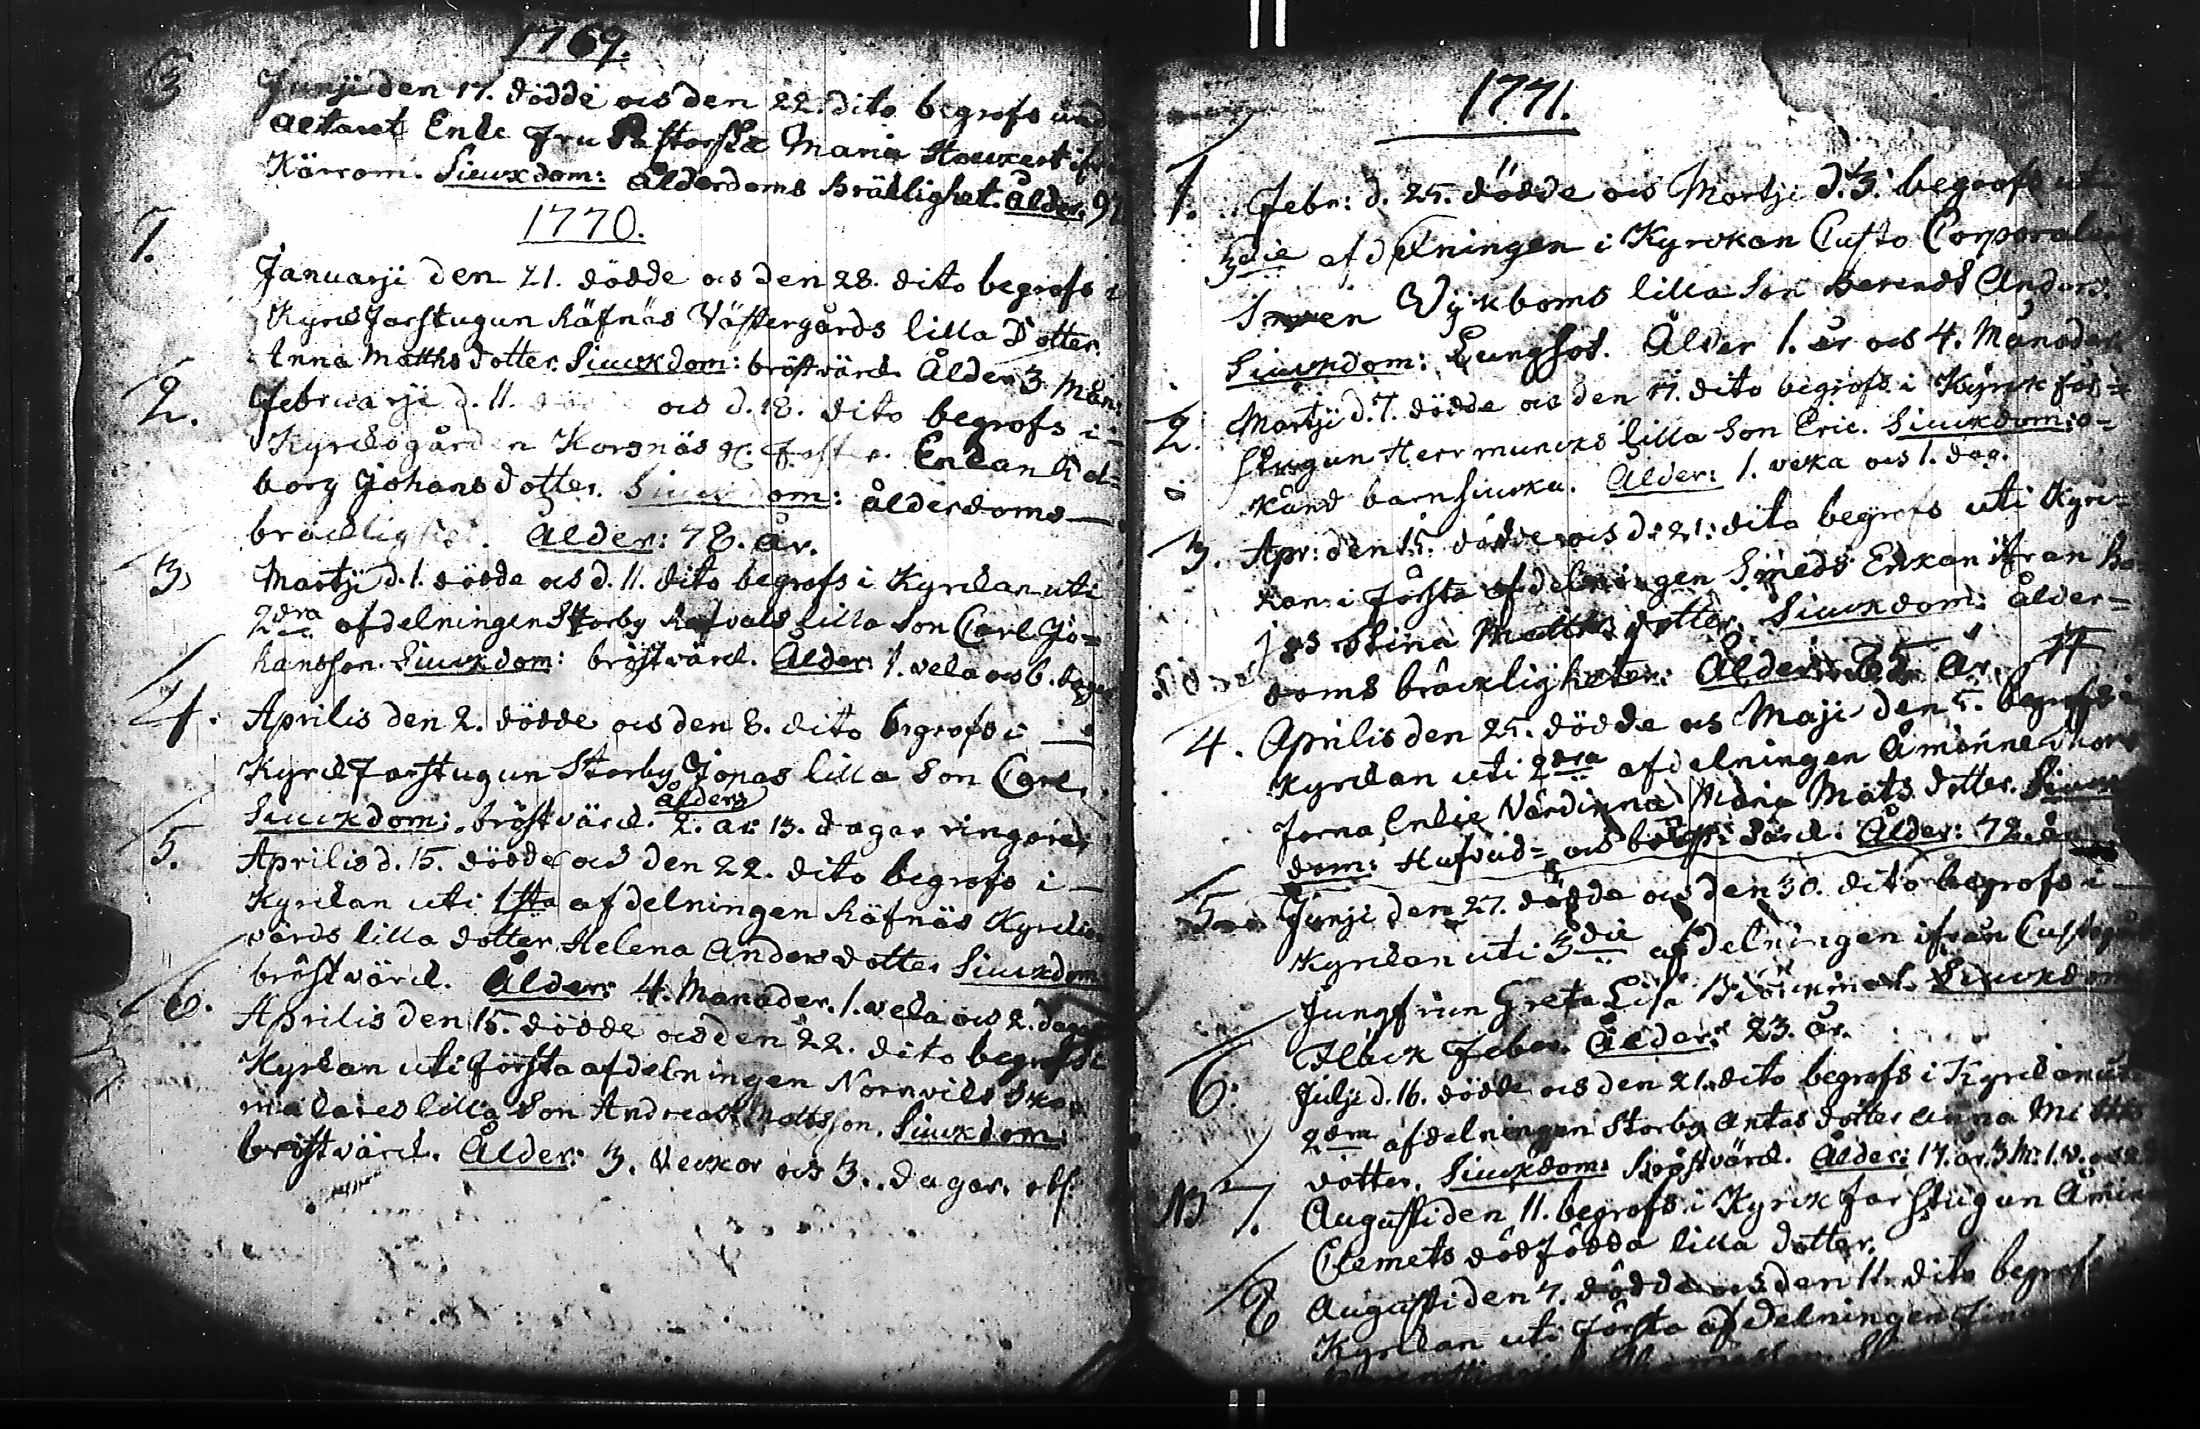 1769.
Junji den 17. dödde och den 22. dito begrofs und
altaret Enke Fru Pastorska Maria Haveert ifrå
Kärrom. Siuckdom: ålderdoms bräklighet. Ålder. 9
1770.
1.
Januarji den 21. dödde och den 28. dito begrofs i
Kyrckfarstugun Räfnäs Västergårds lilla Dotter
Anna Matths dotter. Siuckdom: bröstvärck Ålder 3 Mån:
2. Februarji d. 11. och d. 18. dito begrofs i
Kyrckogården Korsnäs Enckan Val=
borg Johansdotter. Siuckdom: ålderdoms
bräcklighet. Ålder: 78. år.
3. Martji d. 1. dödde och d. 11. dito begrofs i Kyrckan uti
2dra afdelningen Storby Rafvals lilla Son Carl Jo=
hansson. Siuckdom: bröstvärck. Ålder: 1. veka och 6. dagar
4. Aprilis den 2. dödde och den 8. dito begrofs i
Kyrckfarstugun Storby Jonas lilla Son Carl.
Siuckdom: bröstvärck. ålder 2. år 13. dagar ringare.
5. Aprilis d. 15. dödde och den 22. dito begrofs i
Kyrckan uti 1sta afdelningen Räfnäs Kyrckio
värds lilla dotter Helena Anders dotter Siuckdom
bröstvärck. Ålder: 4. Månader. 1. veka och 2. dagar
6. Aprilis den 15. dödde och den 22. dito begrofs i
Kyrckan uti första afdelningen Nornvils Sko
makares lilla Son Andreas Mattsson. Siuckdom:
bröstvärck. Ålder: 3. Veckor och 3. dagar.
1771.
1. Febr: d. 25. dödde och Martji d. 3. begrofs uti
3die afdelningen i Kyrckan Custo Corporalens
Sven Wijkboms lilla Son Berendt Anders.
Siuckdom: Lungsot. Ålder 1. år och 4. Månader.
2. Martji d. 7. dödde och den 17. dito begrofs i Kyrckfor=
stugun Herrmuncks lilla Son Eric. Siuckdom: o=
känd barnsiucka. Ålder: 1. veka och 1. dag.
3. Apr: den 15. dödde och d. 21: dito begrofs uti Kyrc=
kan i första afdelningen Smeds Enkan ifrån
Stina Matths dotter. Siuckdom: ålder=
doms bräckligheter. Ålder: 85 År.
4. Aprilis den 25. dödde och Maji den 5. begrofs i
Kyrckan uti 2dra afdelningen Åminne
Värdinna Maria Mats dotter. Siuck
dom: Hufvud= och bröst värck. Ålder: 72. år
5. Junji den 27. dödde och den 30. dito begrofs i
Kyrckan uti 3die afdelningen ifrån Custo
Jungfrun Greta Lisa Siuckdom
Fläck Feber. Ålder: 23. år.
6. Julji d. 16. dödde och den 21. dito begrofs i Kyrckan uti
2dra afdelningen Storby Antas dotter Anna Matths
dotter. Siuckdom: bröstvärck. Ålder: 17. år. 3 M: 1. v.
NB 7. Augusti den 11. begrofs i Kyrckfarstugun Åmin
Clemets dödfödda lilla dotter.
8 Augusti den 7. dödde och den 11. dito begrofs
Kyrckan uti första afdelningen